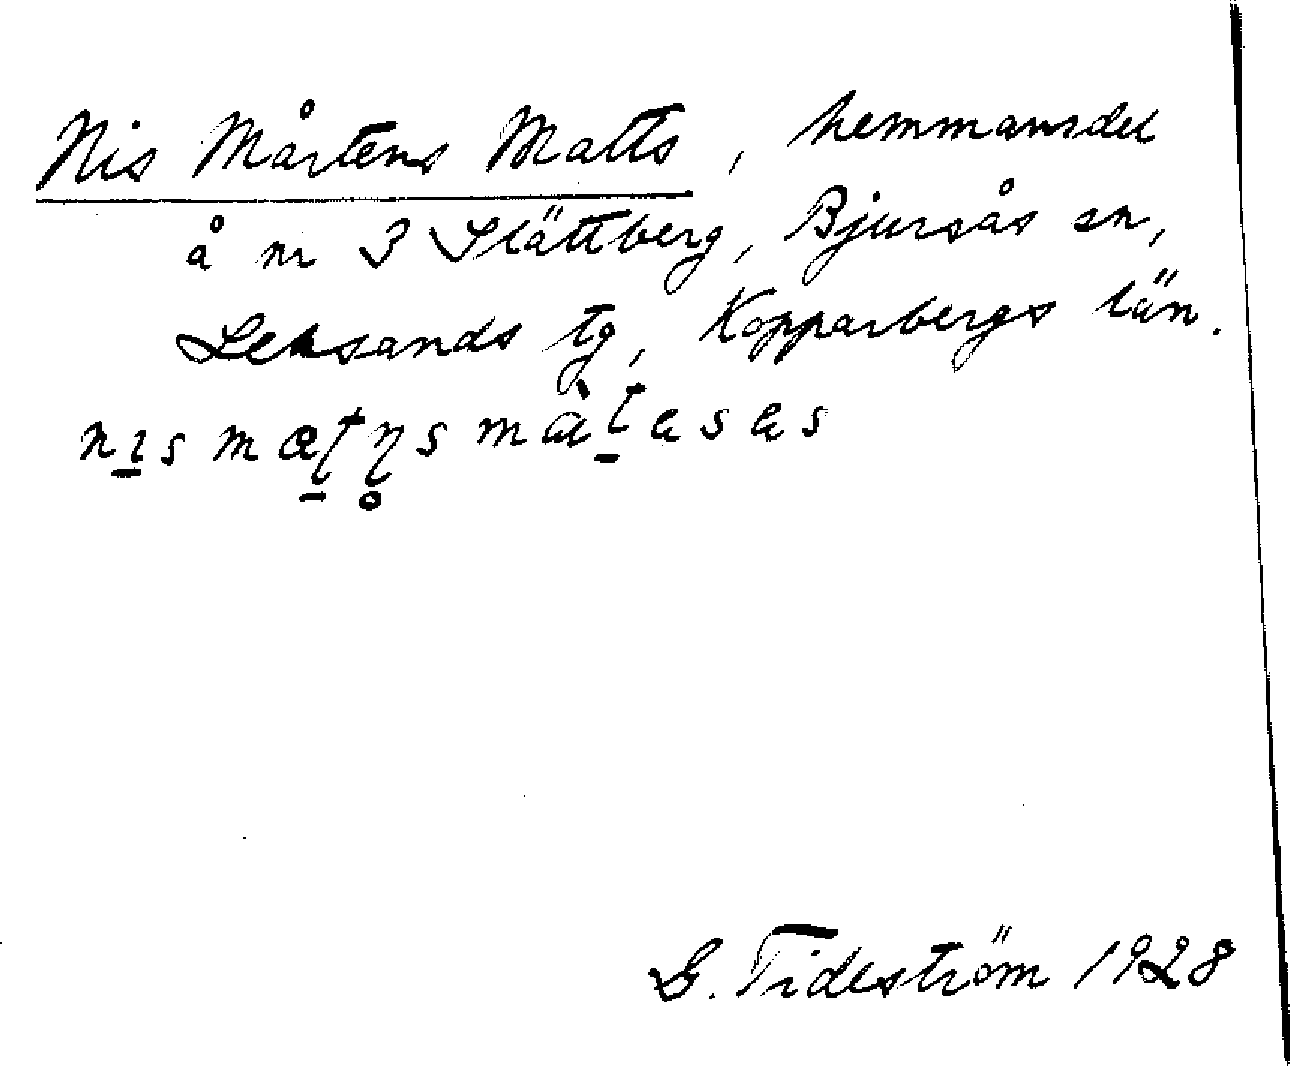 Nis Mårtens Matts, hemmansdel
å nr 3 Slättberg, Bjursås sn,
Leksands tg, Kopparbergs län.
nɪ̠s mæʈ̠ɳ̥s màt̠asas
G. Tideström 1928